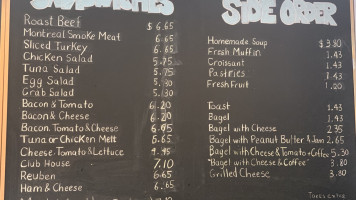 SANDWICHES
Roast Beef $6.65
Montreal Smoke Meat 6.65
Sliced Turkey 6.65
Chicken Salad 5.75
Tuna Salad 5.75
Egg Salad 5.30
Crab Salad 5.30
Bacon & Tomato 6.20
Bacon & Cheese 6.20
Bacon, Tomato & Cheese 6.95
Tuna or Chicken Melt 6.65
Cheese, Tomato & Lettuce 4.95
Club House 7.10
Reuben 6.65
Ham & Cheese 6.65
SIDE ORDER
Homemade Soup $3.80
Fresh Muffin 1.43
Croissant 1.43
Pastries 1.43
Fresh Fruit 1.20
Toast 1.43
Bagel 1.43
Bagel with Cheese 2.35
Bagel with Peanut Butter & Jam 2.65
Bagel with Cheese & Tomato + Coffee 5.30
"Bagel with Cheese & Coffee" 3.80
Grilled Cheese 3.80
Taxes extra